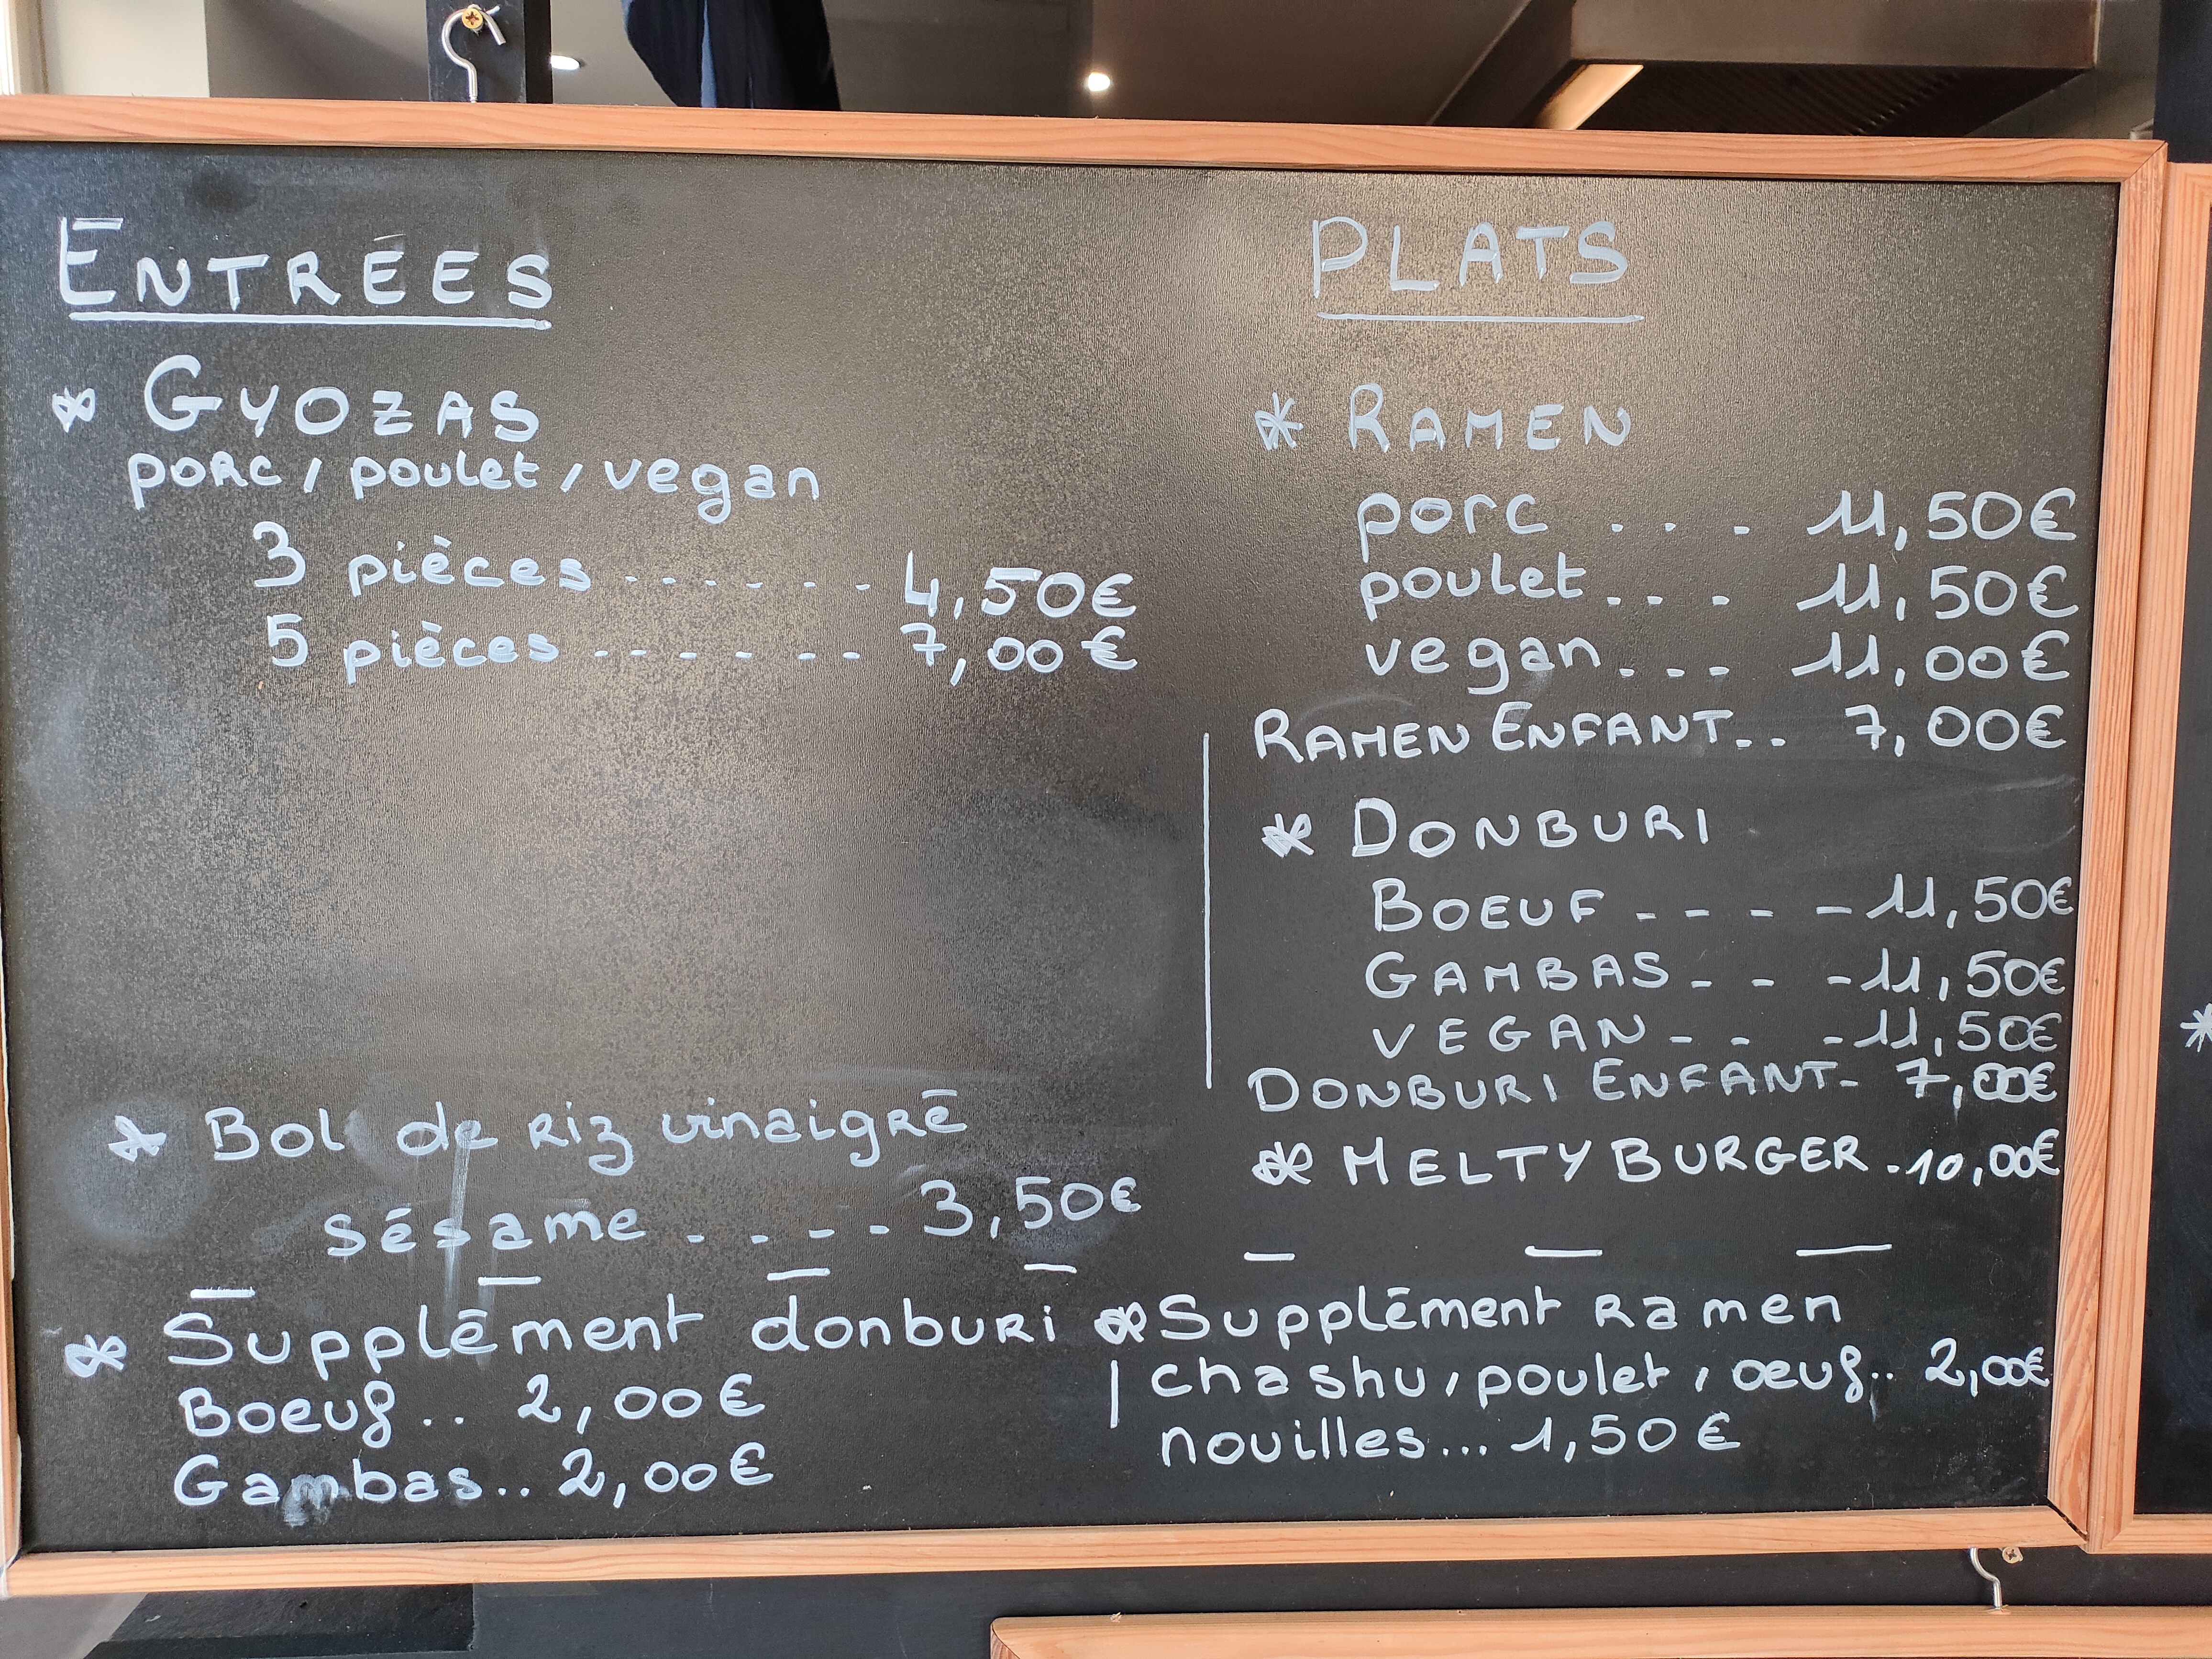 ENTRÉES
* GYOZAS
porc / poulet / vegan
3 pièces ...... 4,50€
5 pièces ...... 7,00€
* Bol de riz vinaigré
sésame .... 3,50€
* Supplément donburi
Boeuf .. 2,00€
Gambas .. 2,00€
PLATS
* RAMEN
porc ... 11,50€
poulet ... 11,50€
vegan ... 11,00€
RAMEN ENFANT .. 7,00€
* DONBURI
BOEUF - - - - 11,50€
GAMBAS - - - 11,50€
VEGAN - - - 11,50€
DONBURI ENFANT - 7,00€
* MELTY BURGER . 10,00€
* Supplément ramen
chashu, poulet, oeuf .. 2,00€
nouilles ... 1,50€